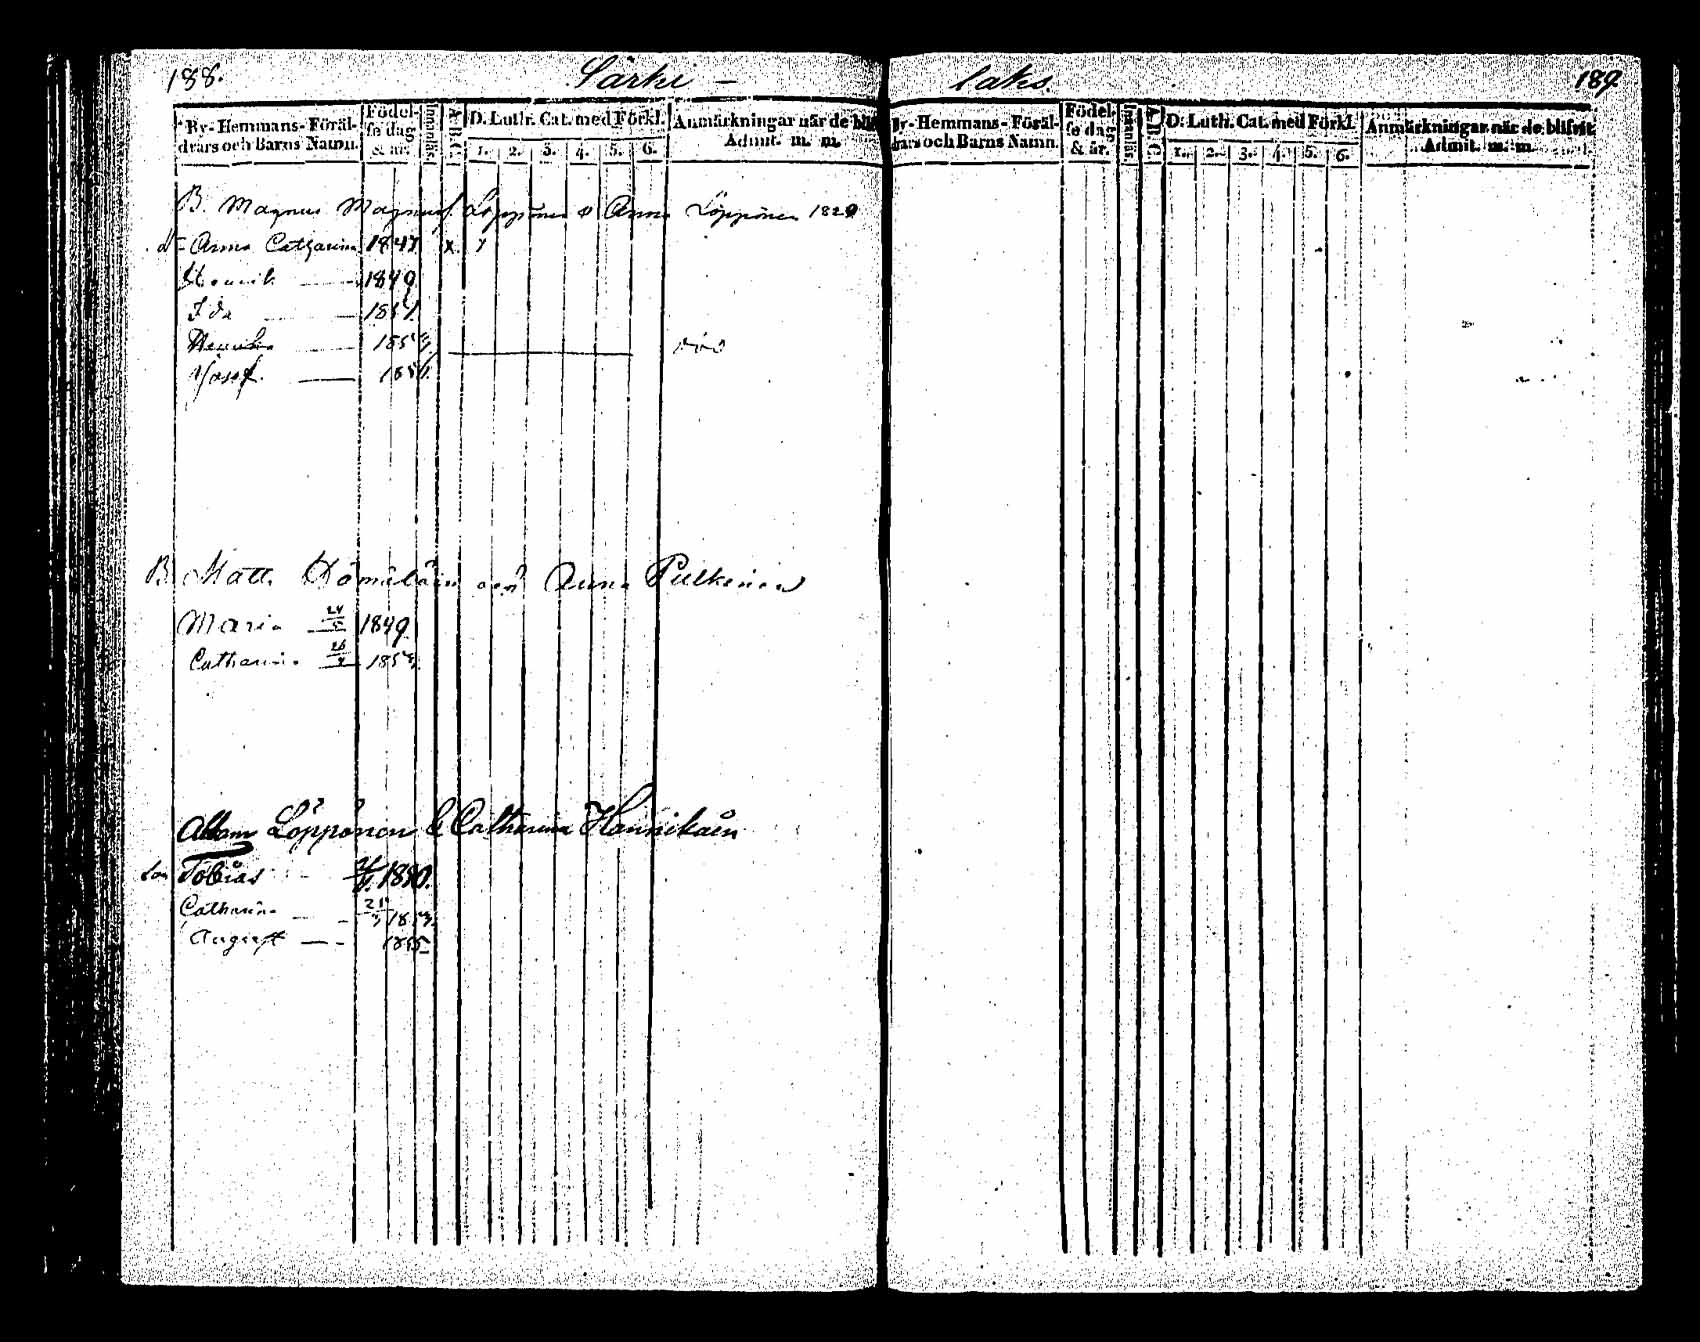 188.
Särki -
By- Hemmans- Föräl-
drars och Barns Namn.
Födel-
se dag
& år.
Innanläs.
A. B. C.
D. Luth. Cat. med Förkl.
1. 2. 3. 4. 5. 6.
Anmärkningar när de blif
Admit. m. m.
B. Magnus Magnuss. Löppönen & Anna Löppönen 1829
d= Anna Catharina 1847 x
Henrik 1849
Ida 1851
185 död
Josef. 185
B. Matts och Anna Pulkinen
Maria 1849
Catharina 1853
Adam Löppönen & Catharina Hannikain
son Tobias 1850.
Catharina 1853.
August 1855
laks.
189
By- Hemmans- Föräl-
drars och Barns Namn.
Födel-
se dag
& år.
Innanläs.
A. B. C.
D. Luth. Cat. med Förkl.
1. 2. 3. 4. 5. 6.
Anmärkningar när de blifvit
Admit. m. m.